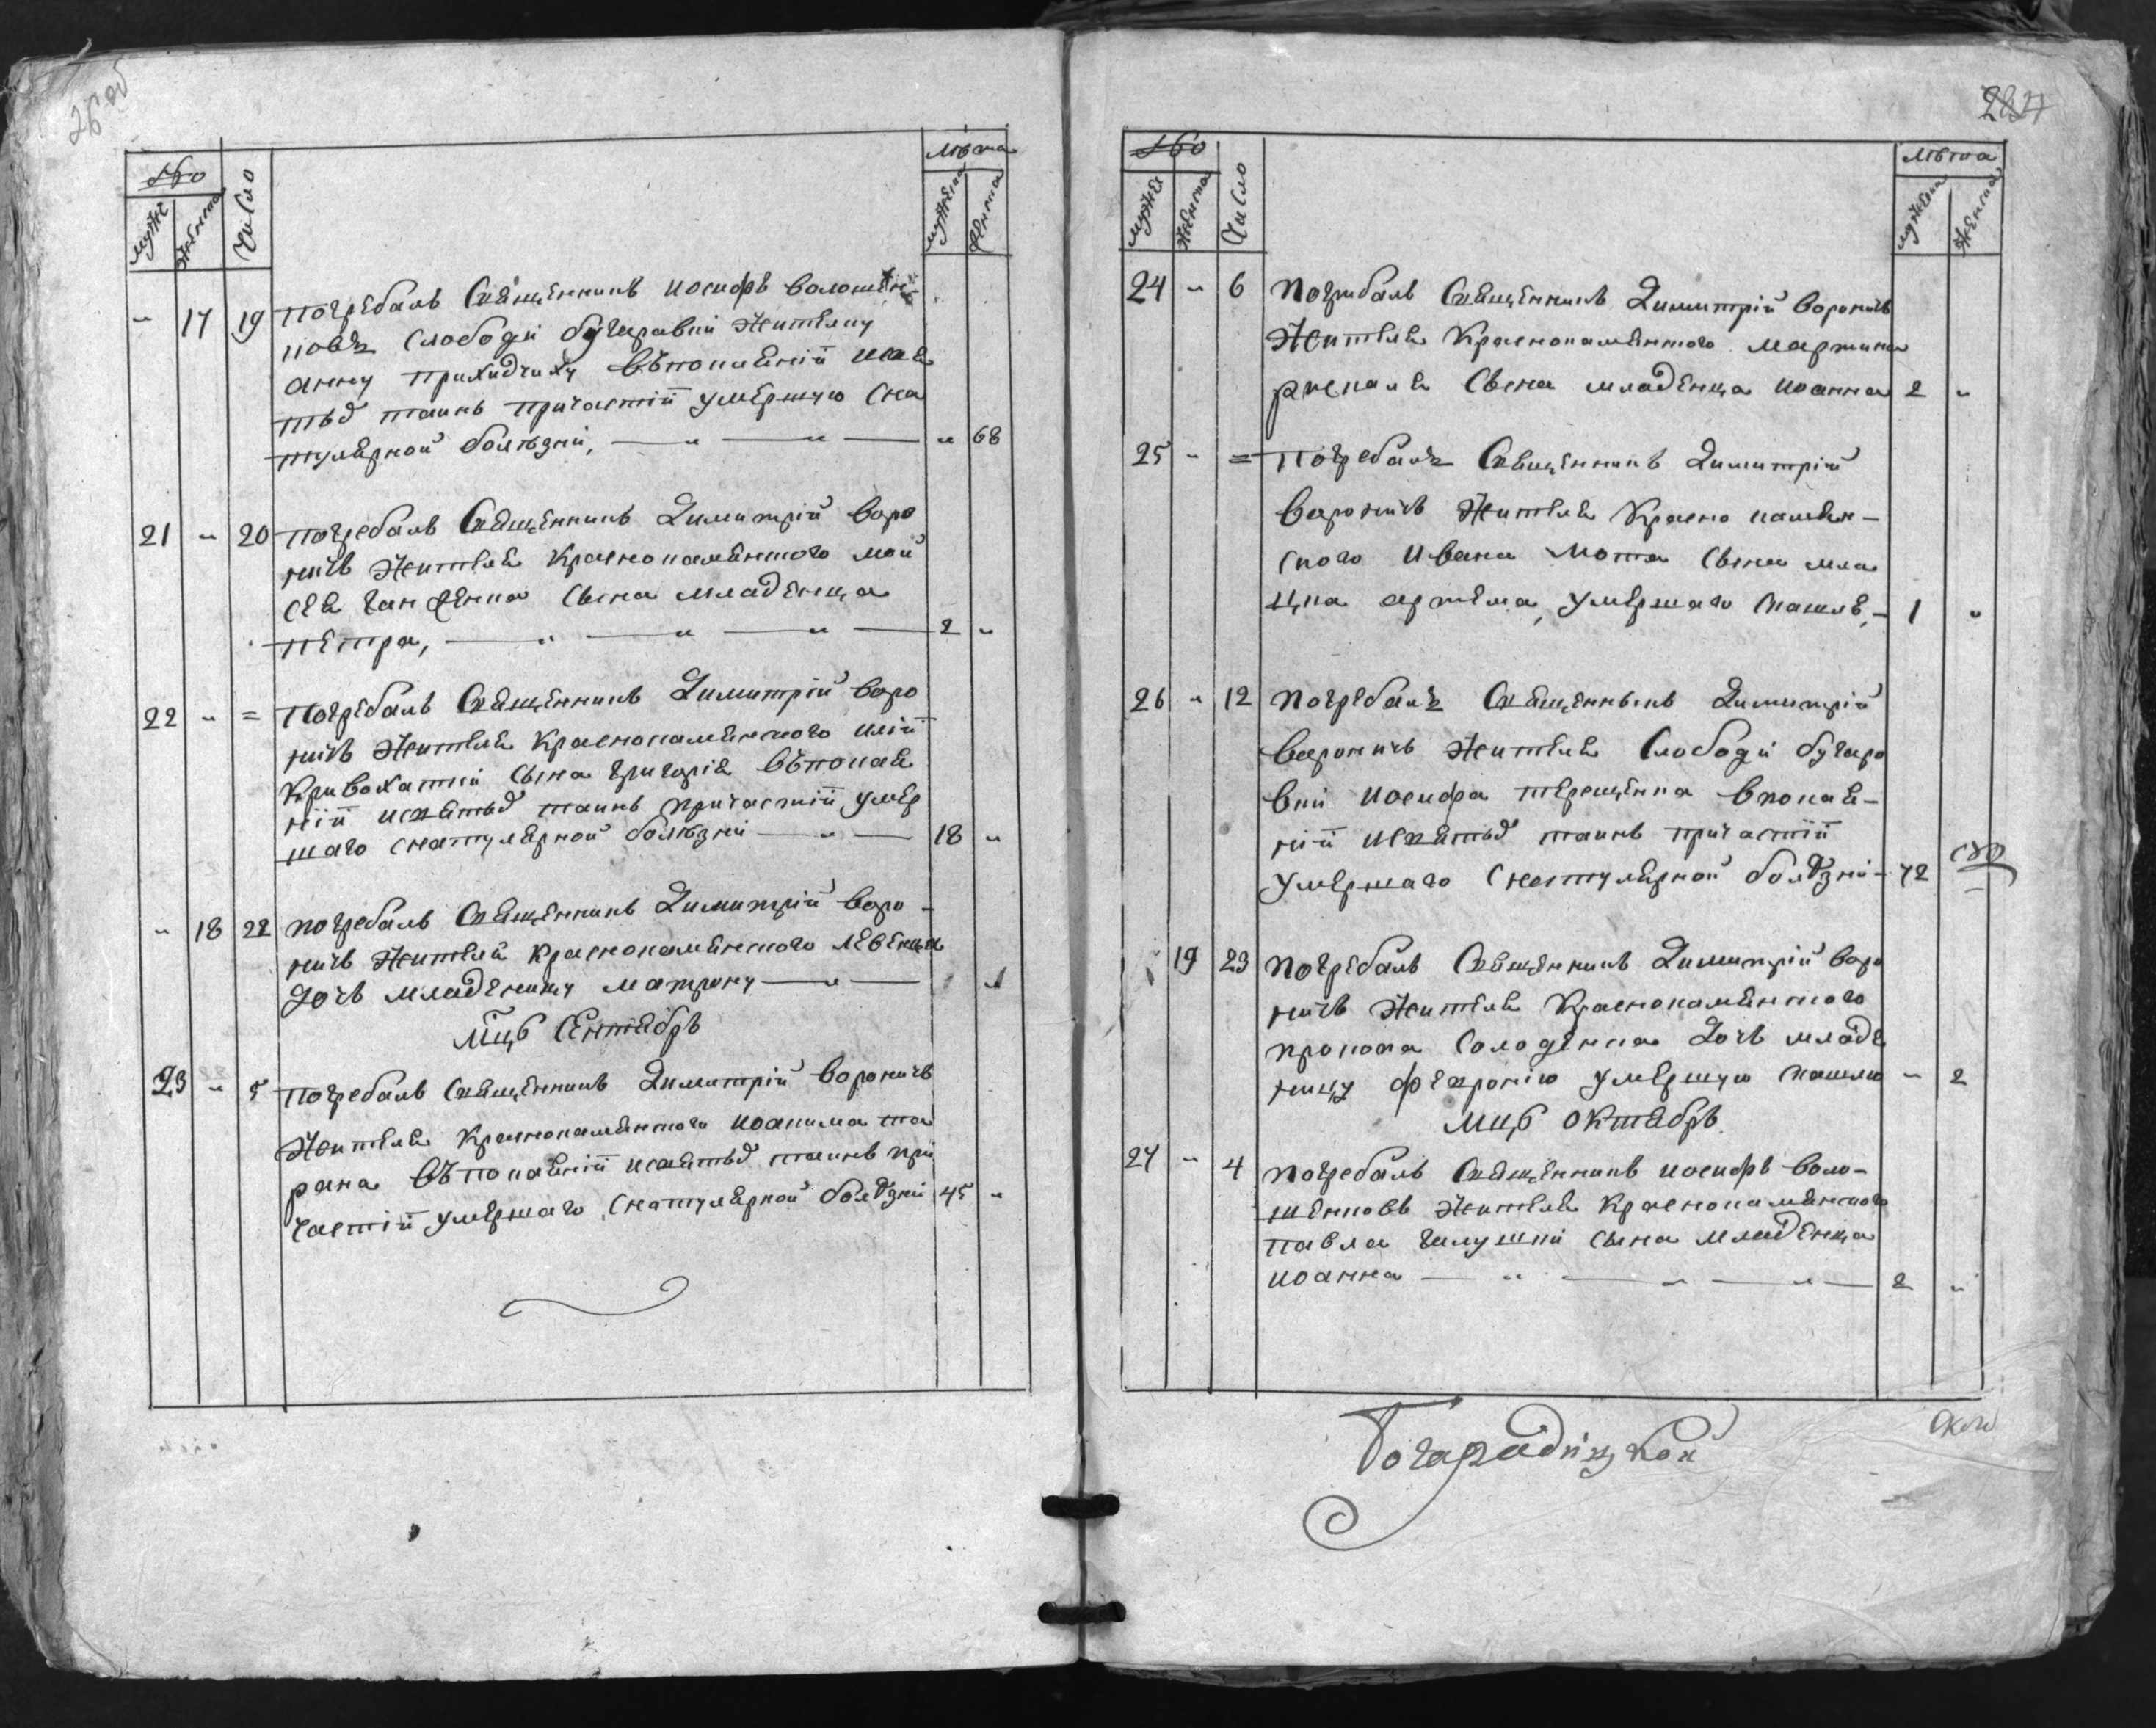 26 об
№о
Число
Лѣта
мужс женска
мужеска женска
" 17 19 погребалъ Священникъ иосифъ волошен
ковъ Слободи бугаровки жителку
анну приходчиху въпокаянiи исвя
тыхъ таинъ причастiи умершую сна
туларной болѣзни, — " — " — " 68
21 " 20 погребалъ Священникъ Димитрiй воро
ничъ жителя краснокаменского мои
сея ганженка сына младенца
петра, — " — " — " — 2 "
22 " = погребалъ Священникъ Димитрiй воро
ничъ жителя краснокаменского илiи
кривохатки сына григорiя въпокая
нiи исвятыхъ таинъ причастiи умер
шаго снатуларной болѣзни — " — 18 "
" 18 22 погребалъ Священникъ Димитрiй воро-
ничъ жителя краснокаменского
дочъ младеницу матрону — " — 1
мцъ Сентябръ
23 " 5 погребалъ Священникъ Димитрiй вороничъ
жителя краснокаменского иоакима та
рана въпокаянiи исвятыхъ таинъ при
частiи умершаго снатуларной болѣзни 45 "
№о
Число
Лѣта
мужс женска
мужеска женска
24 " 6 погребалъ Священникъ Димитрiй вороничъ
жителя краснокаменского мартина
сына младенца иоанна 2 "
25 " = погребалъ Священникъ Димитрiй
вороничъ жителя красно камен-
ского ивана мота сына мла
нца артема, умершаго скашля, - 1 "
26 " 12 погребалъ Священникъ Димитрiй
вороничъ жителя Слободи бугаро
вки иосифа терещенка впокая-
нiи исвятыхъ таинъ причастiи
умершаго снатуларной болѣзни - 72
19 23 погребалъ Священникъ Димитрiй воро
ничъ жителя краснокаменского
прокопа солоденка дочъ младе
ницу февронiю умершую кашлю " 2
мцъ октябръ
27 " 4 погребалъ Священникъ иосифъ воло-
шенковъ жителя краснокаменского
павла галушки сына младенца
иоанна — " — " — " — 2 "